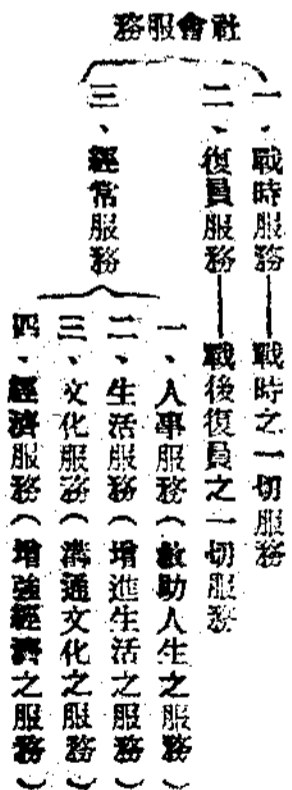 社會服務
一、戰時服務——戰時之一切服務
二、復員服務——戰後復員之一切服務
三、經常服務
一、人事服務（救助人生之服務）
二、生活服務（增進生活之服務）
三、文化服務（溝通文化之服務）
四、經濟服務（增強經濟之服務）